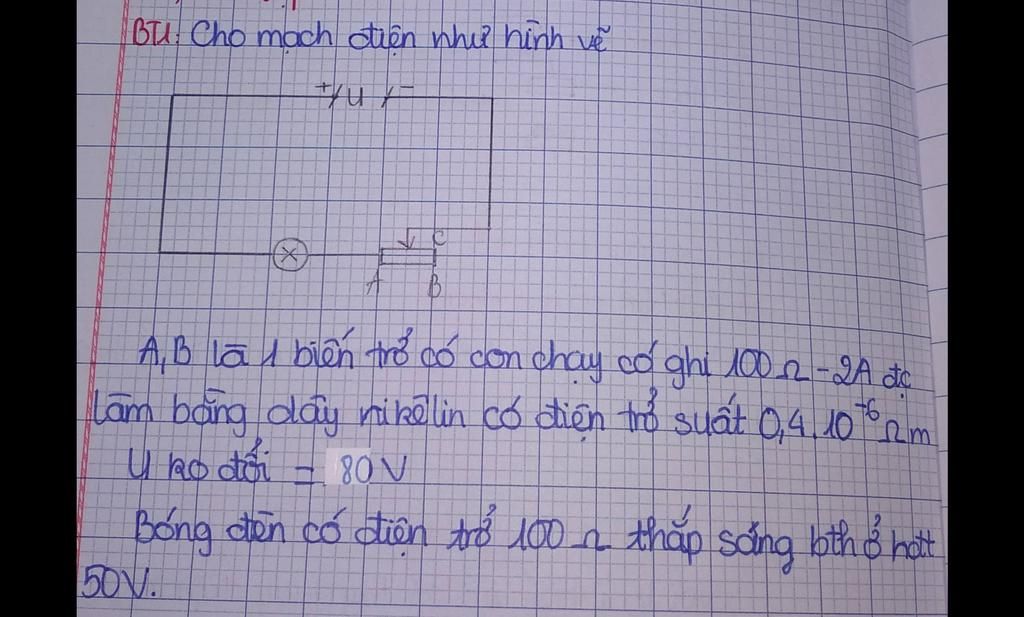 BT1: Cho mạch điện như hình vẽ
+ U -
C
A B
A,B là 1 biến trở có con chạy có ghi 100Ω - 2A đc
làm bằng dây nikêlin có điện trở suất 0,4.10⁻⁶ Ωm
U ko đổi = 80V
Bóng đèn có điện trở 100Ω thắp sáng bth ở hđt
50V.